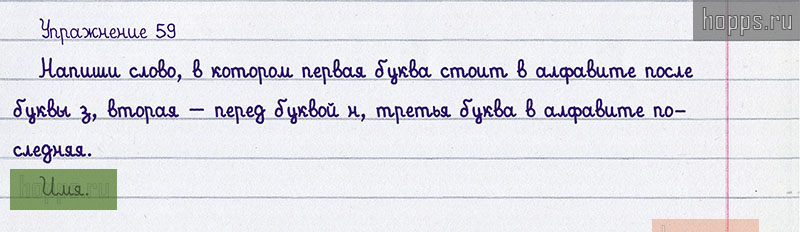 hopps.ru
Упражнение 59
Напиши слово, в котором первая буква стоит в алфавите после
буквы з, вторая — перед буквой н, третья буква в алфавите по-
следняя.
Имя.